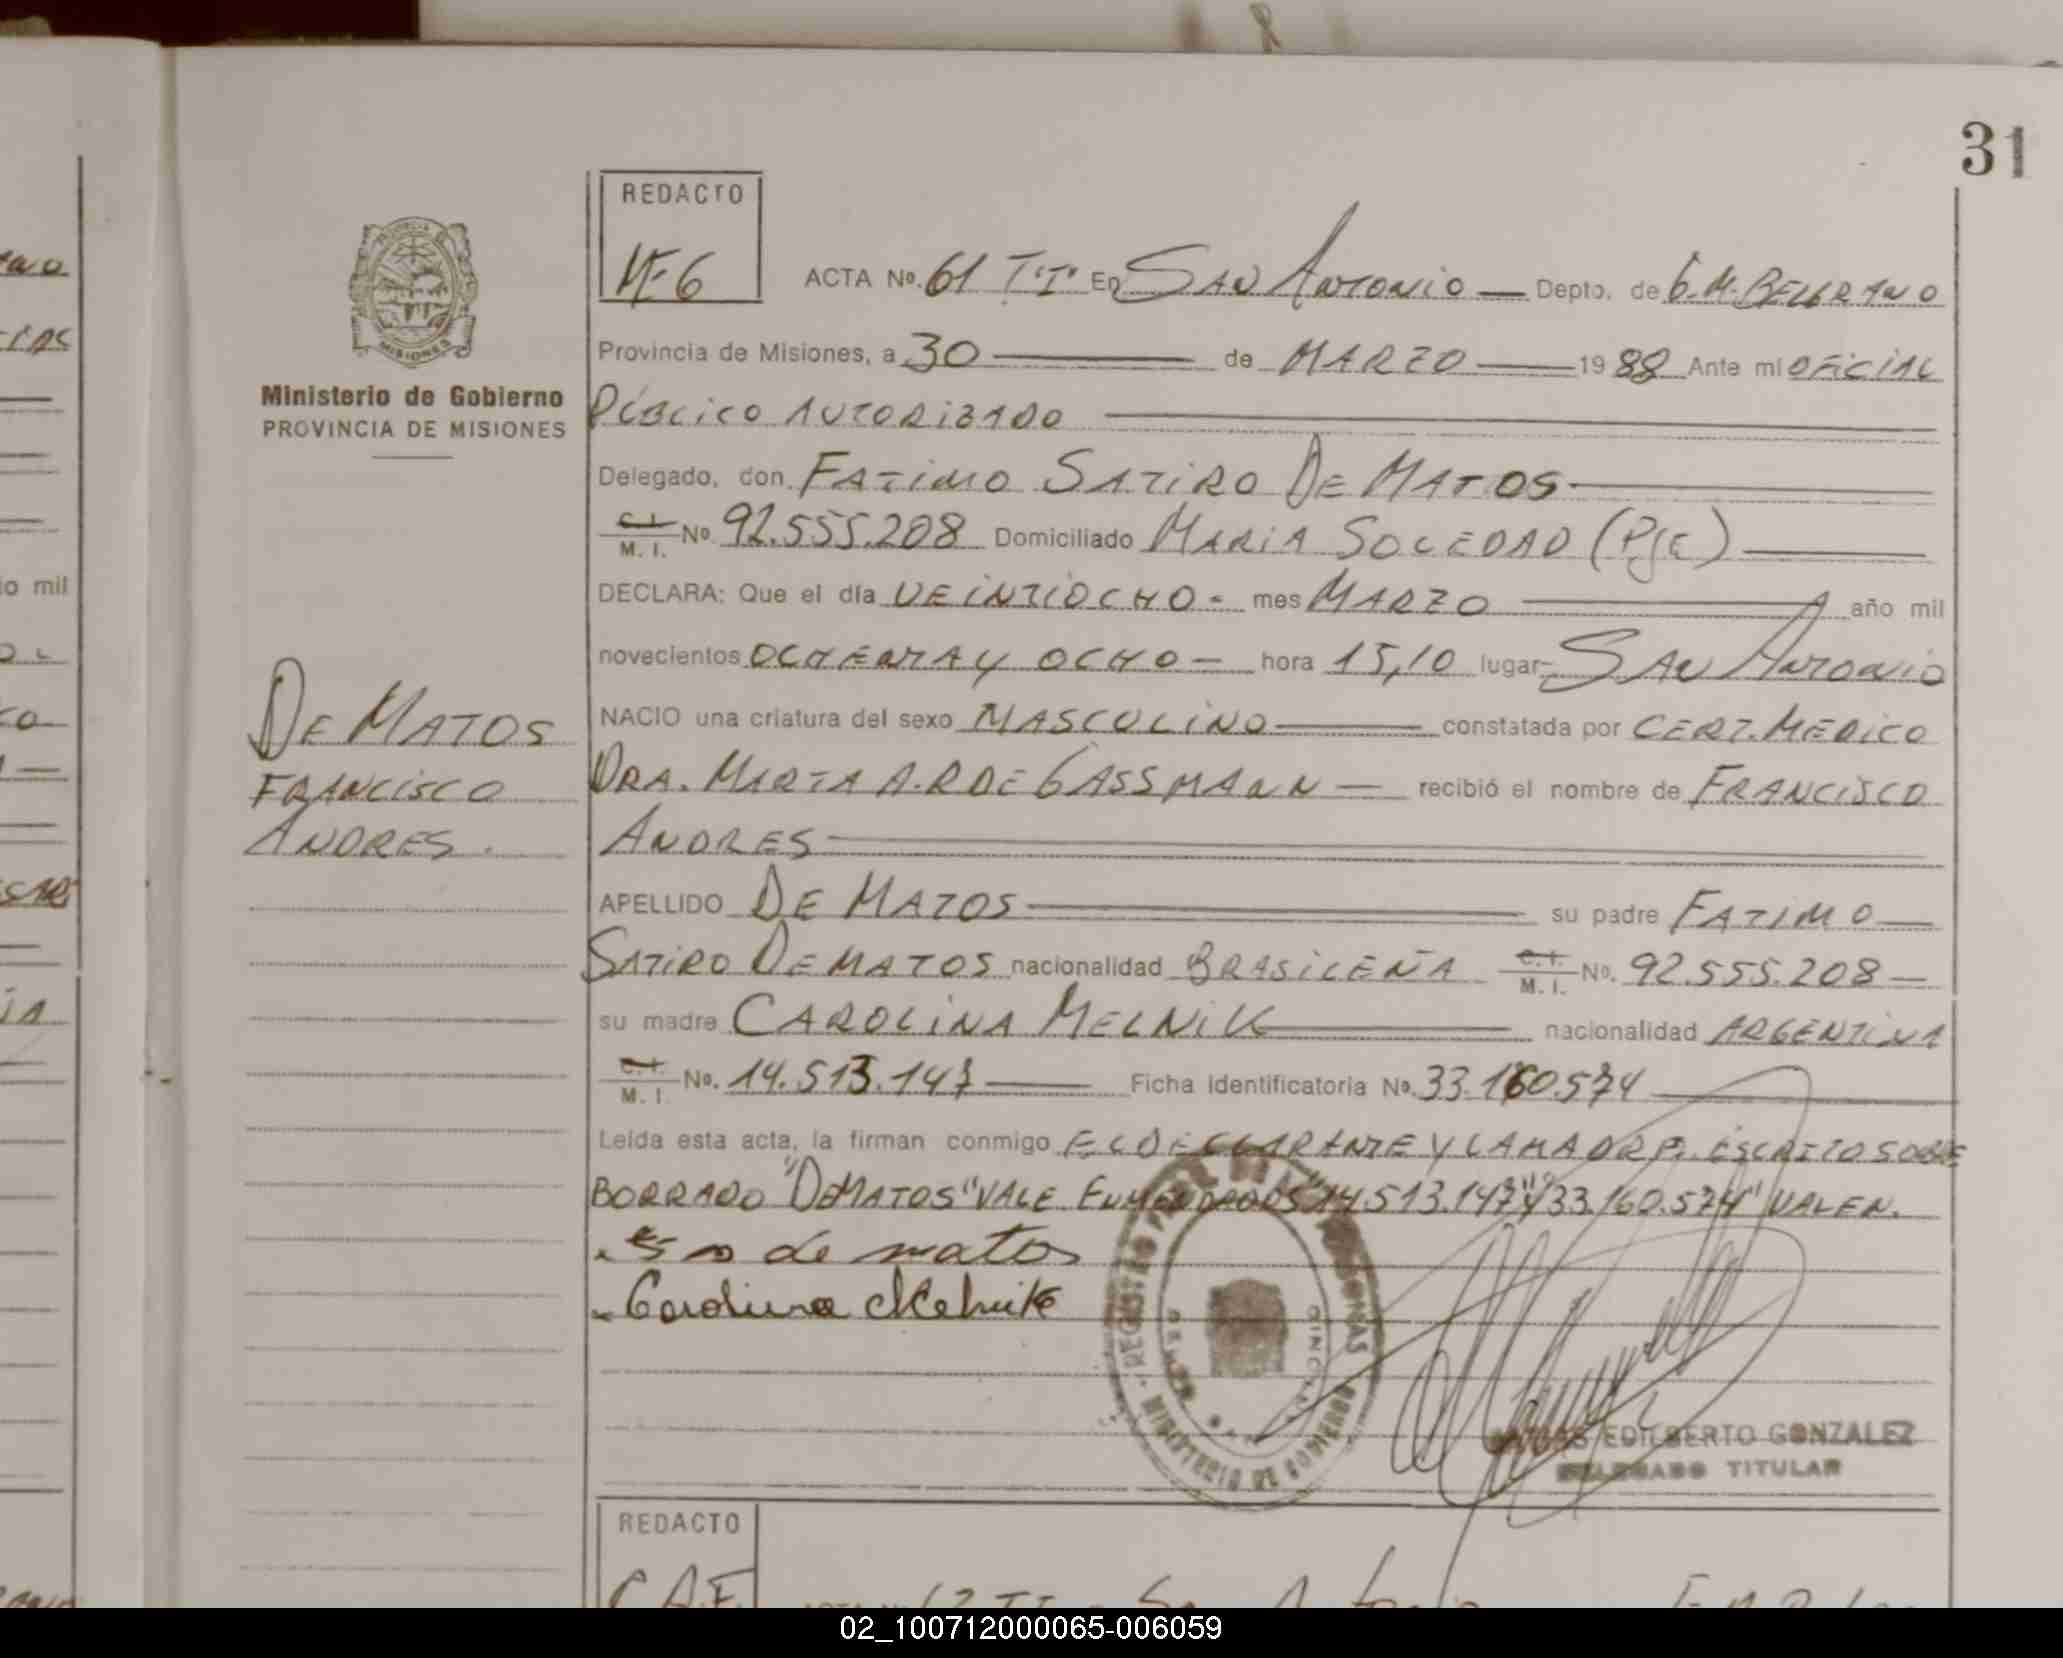 31
REDACTO
ACTA Nº. 61 T"I" En SAN ANTONIO — Depto. de G.M. BELGRANO
Provincia de Misiones, a 30 — de MARZO — 1988 Ante mi OFICIAL
PÚBLICO AUTORIZADO
Delegado, don FATIMO SATIRO DE MATOS
C.I. M. I. Nº 92.555.208 Domiciliado MARIA SOLEDAD (PJE)
DECLARA: Que el día VEINTIOCHO - mes MARZO — año mil
novecientos OCHENTA Y OCHO — hora 15,10 lugar SAN ANTONIO
NACIO una criatura del sexo MASCULINO — constatada por CERT. MEDICO
DRA. MARTA A.R DE GASSMANN — recibió el nombre de FRANCISCO
ANDRES
APELLIDO DE MATOS — su padre FATIMO
SATIRO DE MATOS nacionalidad BRASILEÑA C.I. M. I. Nº. 92.555.208 —
su madre CAROLINA MELNIK — nacionalidad ARGENTINA
C.I. M. I. Nº. 14.513.147 — Ficha Identificatoria Nº. 33.160.574
Leída esta acta, la firman conmigo EL DECLARANTE Y LA MADRE. ESCRITO SOBRE
BORRADO "DE MATOS" VALE. ENMENDADOS "14.513.147" Y "33.160.574" VALEN.
de matos
Carolina Melnik
REGISTRO PROVINCIAL DE LAS PERSONAS
MINISTERIO DE GOBIERNO
EDILBERTO GONZALEZ
DELEGADO TITULAR
MISIONES
Ministerio de Gobierno
PROVINCIA DE MISIONES
DE MATOS
FRANCISCO
ANDRES.
REDACTO
C.A.F.
02_100712000065-006059